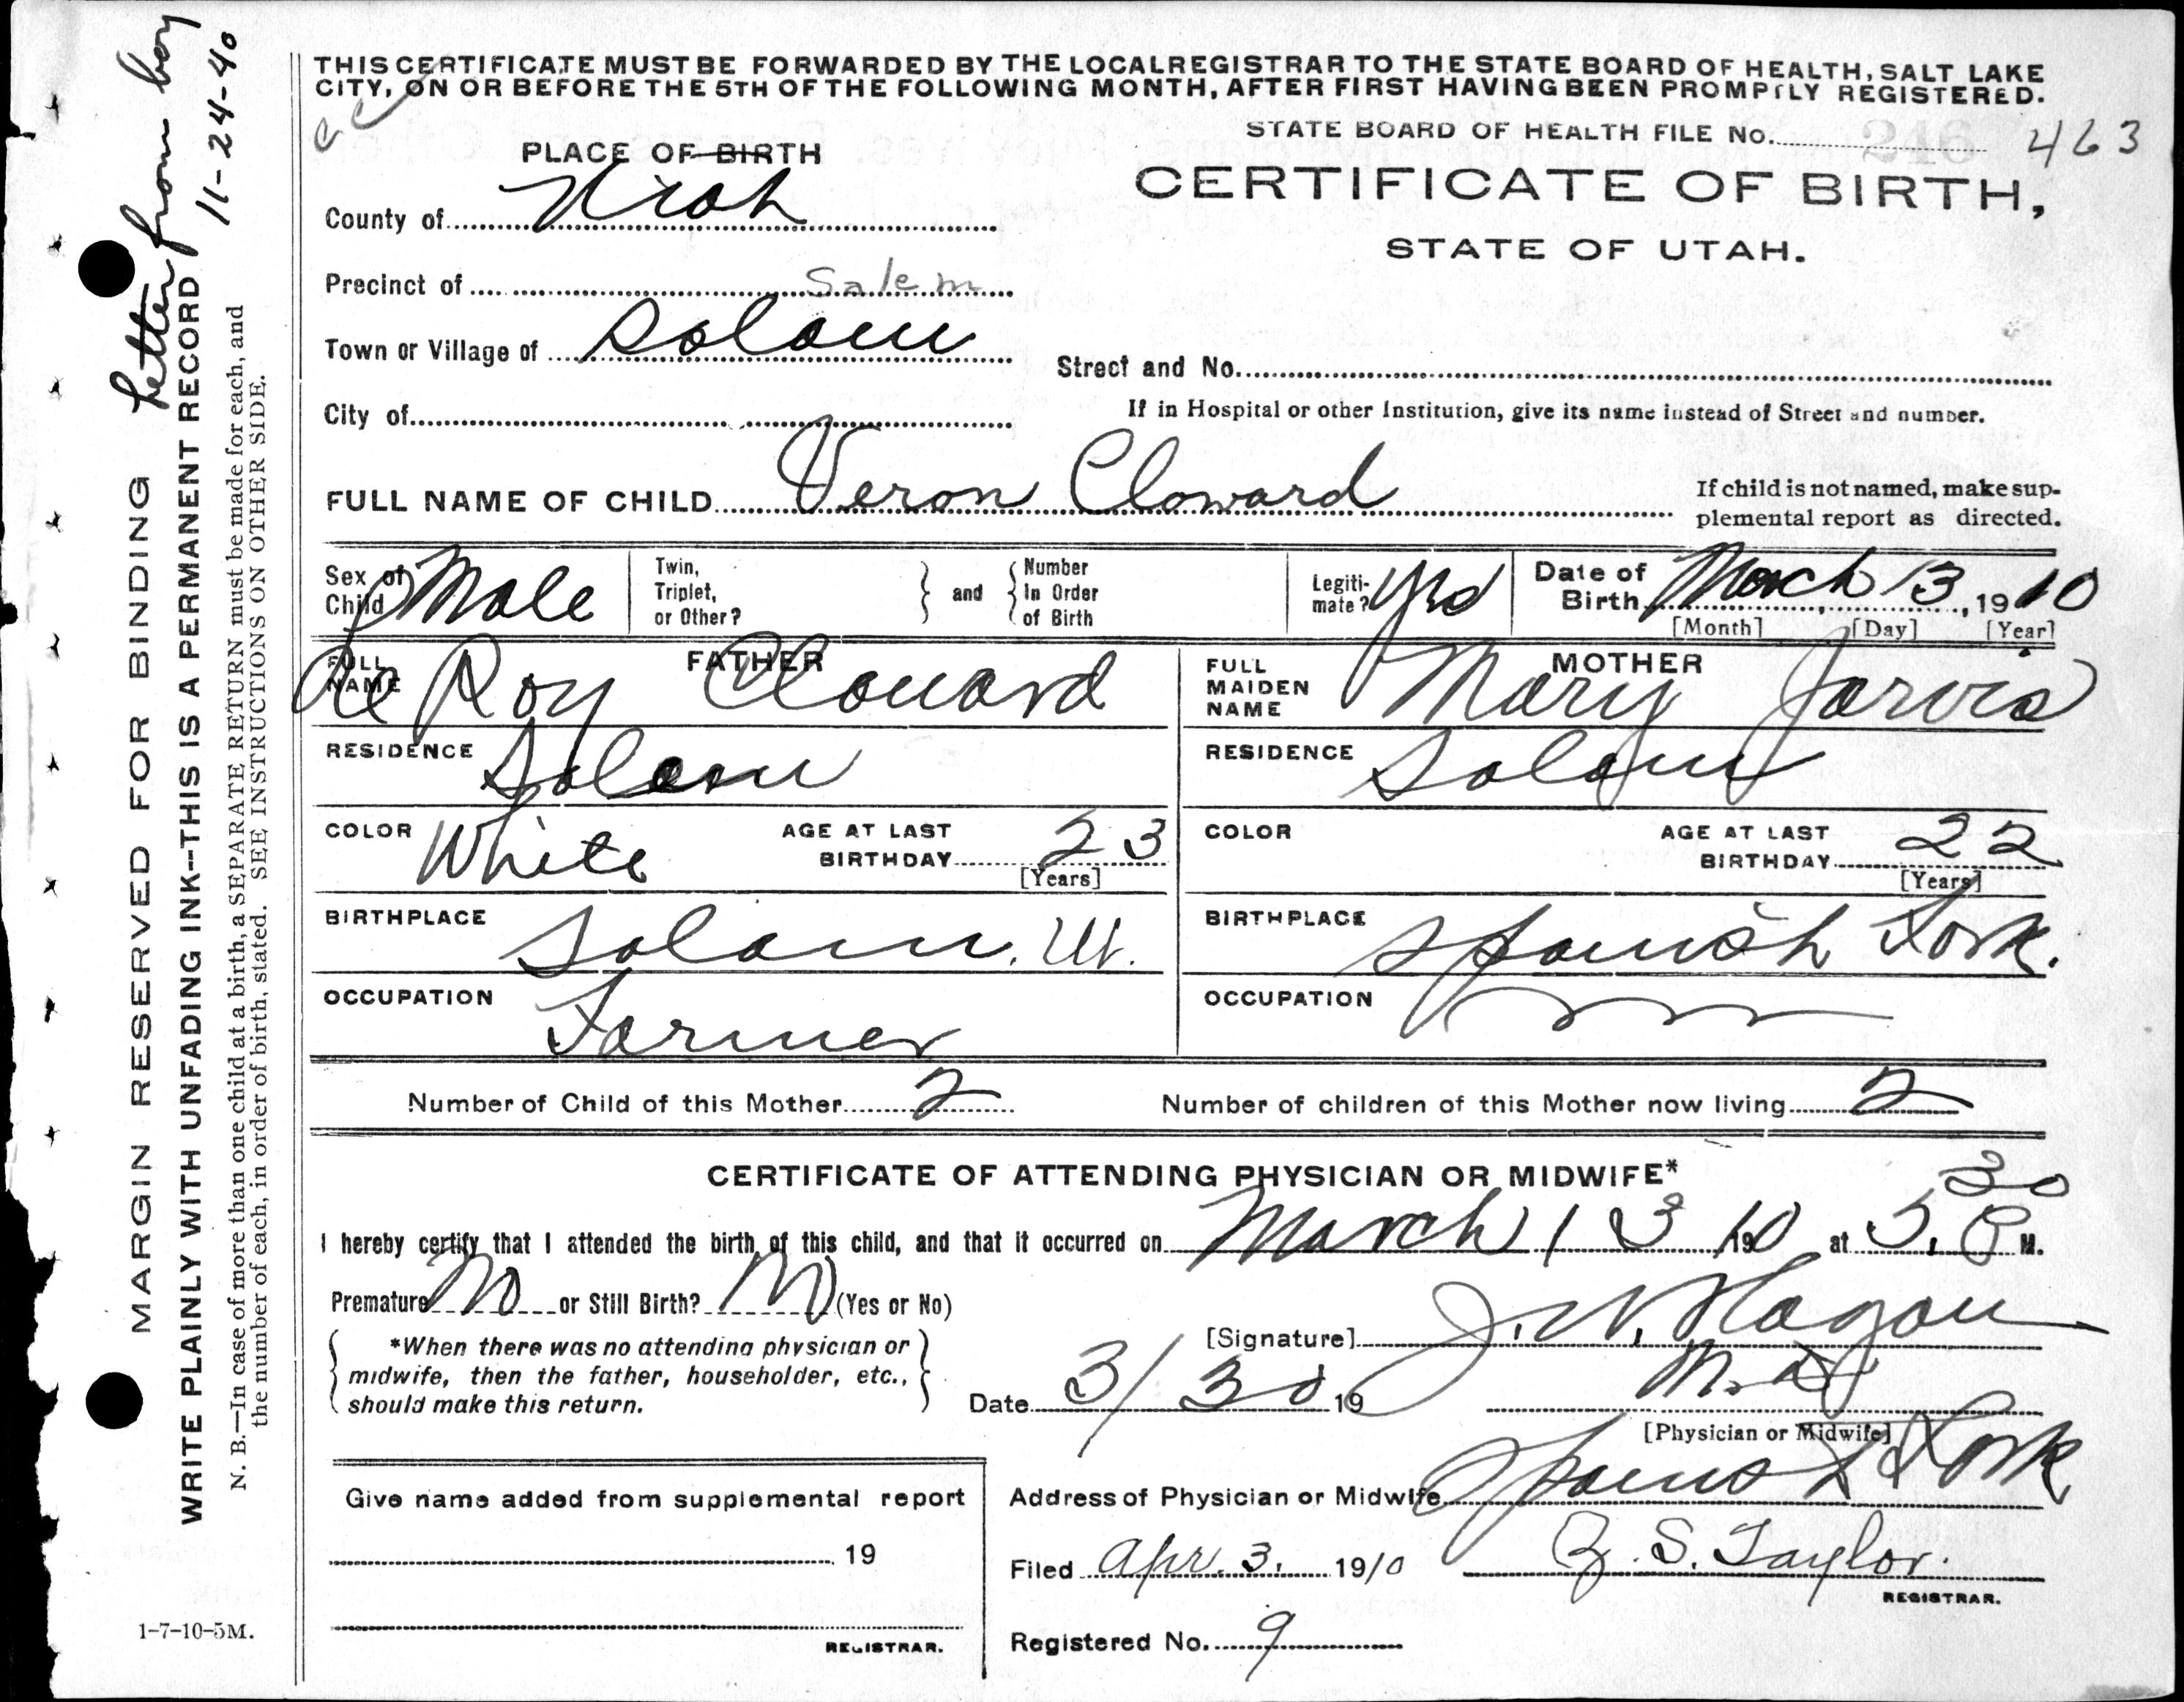 THIS CERTIFICATE MUST BE FORWARDED BY THE LOCAL REGISTRAR TO THE STATE BOARD OF HEALTH, SALT LAKE
CITY, ON OR BEFORE THE 5TH OF THE FOLLOWING MONTH, AFTER FIRST HAVING BEEN PROMPTLY REGISTERED.
STATE BOARD OF HEALTH FILE No. 246 463
PLACE OF BIRTH
CERTIFICATE OF BIRTH,
STATE OF UTAH.
County of Utah
Precinct of Salem
Town or Village of Salem
Street and No.
City of
If in Hospital or other Institution, give its name instead of Street and number.
FULL NAME OF CHILD Veron Cloward
If child is not named, make sup-
plemental report as directed.
Sex of Child Male
Twin, Triplet, or Other? and Number In Order of Birth
Legiti-mate? Yes
Date of Birth March 13, 1910
[Month] [Day] [Year]
FATHER
FULL NAME Le Roy Cloward
MOTHER
FULL MAIDEN NAME Mary Jarvis
RESIDENCE Salem
RESIDENCE Salem
COLOR White AGE AT LAST BIRTHDAY 23 [Years]
COLOR AGE AT LAST BIRTHDAY 22 [Years]
BIRTHPLACE Salem. Ut.
BIRTHPLACE Spanish Fork.
OCCUPATION Farmer
OCCUPATION
Number of Child of this Mother 2 Number of children of this Mother now living 2
CERTIFICATE OF ATTENDING PHYSICIAN OR MIDWIFE*
I hereby certify that I attended the birth of this child, and that it occurred on March 13 1910 at 5.30 P M.
Premature No or Still Birth? No (Yes or No)
*When there was no attending physician or
midwife, then the father, householder, etc.,
should make this return.
[Signature] J. W. Hagan
M.D.
[Physician or Midwife]
Date 3/30 19
Address of Physician or Midwife Spanish Fork
Give name added from supplemental report
19
REGISTRAR.
Filed Apr. 3, 1910 Z. S. Taylor.
REGISTRAR.
Registered No. 9
1-7-10-5M.
Letter from boy
11-24-40
MARGIN RESERVED FOR BINDING
WRITE PLAINLY WITH UNFADING INK--THIS IS A PERMANENT RECORD
N. B.—In case of more than one child at a birth, a SEPARATE RETURN must be made for each, and
the number of each, in order of birth, stated. SEE INSTRUCTIONS ON OTHER SIDE.